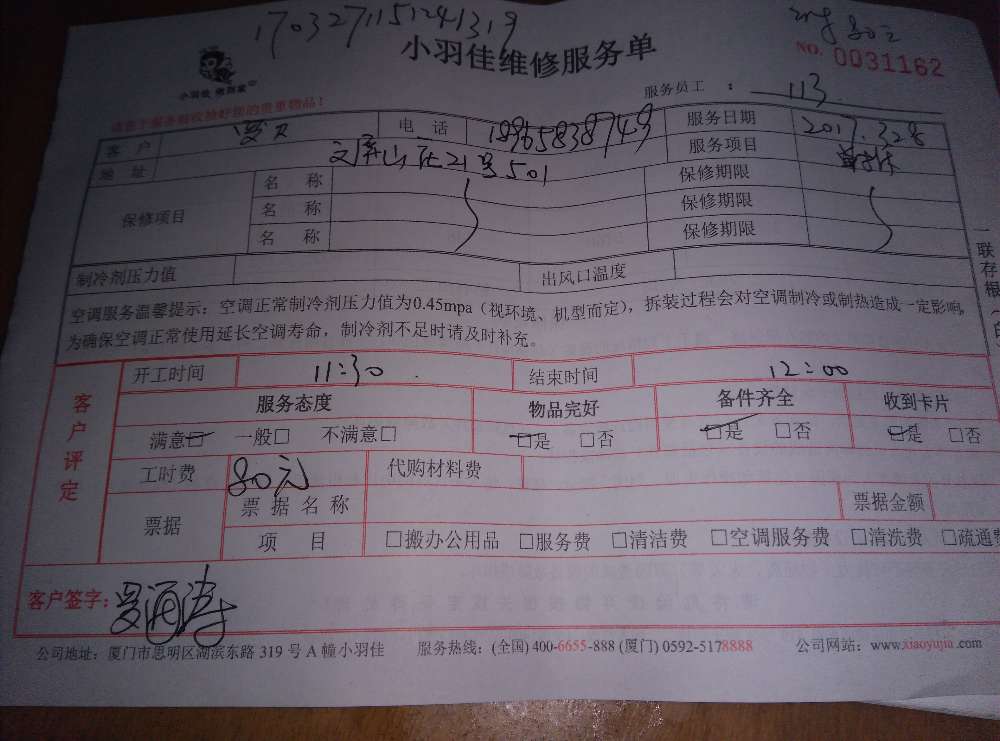 1703271151241319
小羽佳维修服务单
NO. 0031162
小羽佳 做到家
服务员工 : 113
请您于服务前收拾好您的贵重物品!
客 户 电 话 服务日期 2017.3.28
地 址 21号501 服务项目
保修项目 名 称 保修期限
名 称 保修期限
名 称 保修期限
制冷剂压力值 出风口温度
空调服务温馨提示:空调正常制冷剂压力值为0.45mpa(视环境、机型而定),拆装过程会对空调制冷或制热造成一定影响,
为确保空调正常使用延长空调寿命,制冷剂不足时请及时补充。
一联存根
客户评定
开工时间 11:30 结束时间 12:00
服务态度 物品完好 备件齐全 收到卡片
满意□ 一般□ 不满意□ □是 □否 □是 □否 □是 □否
工时费 80元 代购材料费
票据 票 据 名 称 票据金额
项 目 □搬办公用品 □服务费 □清洁费 □空调服务费 □清洗费 □疏通费
客户签字:
公司地址:厦门市思明区湖滨东路 319 号 A 幢小羽佳 服务热线:(全国) 400-6655-888 (厦门) 0592-5178888 公司网站:www.xiaoyujia.com